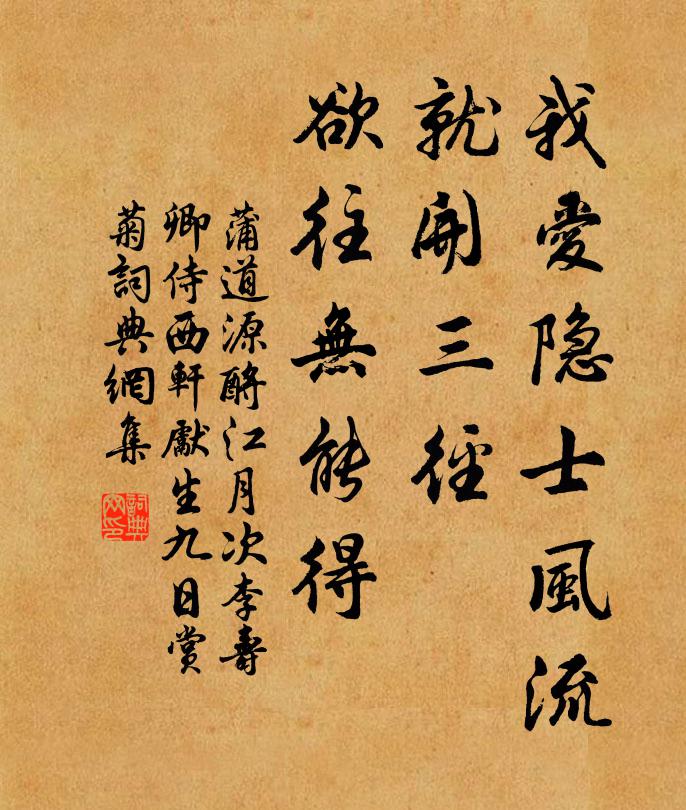 我愛隐士風流
就開三徑
欲往無能得
蒲道源酹江月次李壽
卿侍西軒獻生九日賞
菊詞典網集
詞典網印